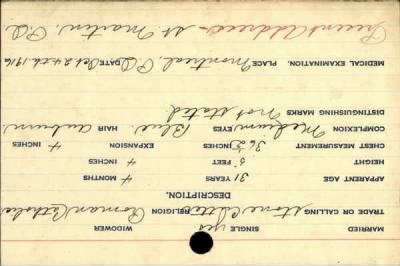 MARRIED yes SINGLE WIDOWER
TRADE OR CALLING Stone Cutter RELIGION Roman Catholic
DESCRIPTION.
APPARENT AGE 31 YEARS 4 MONTHS
HEIGHT 5 FEET 4 INCHES
CHEST MEASUREMENT 36 INCHES EXPANSION 4 INCHES
COMPLEXION Medium EYES Blue HAIR Auburn.
DISTINGUISHING MARKS Not stated.
MEDICAL EXAMINATION. PLACE Montreal, P.Q. DATE Oct 24th 1916
Present Address - St. Martin, P.Q.